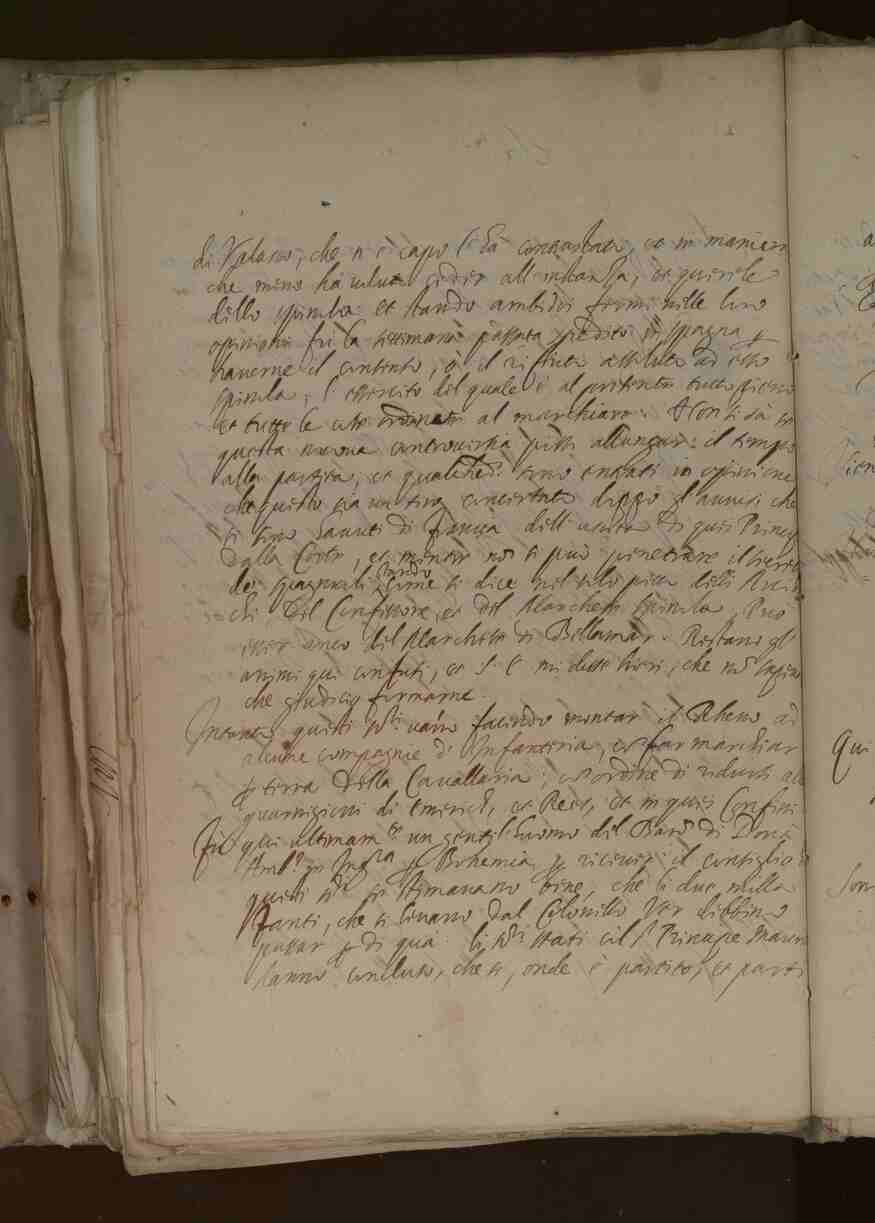 di Velasco, che n'è capo l'hà contrastata, et in maniera
che meno hà voluto ceder all'instanza, et querele
dello spinola et stando ambidoi fermi nelle loro
opinioni fù la settimana passata spedito in spagna p
haverne il contento, ò il rifiuto assoluto ad esso
spinola; l'essercito del quale è al presente tutto pieno
et tutte le cose ordinate al marchiare. Hor si dà se
questa nuova controversia possi allungar il tempo
alla partita, et qualched. sono entrati in opinione
che questo sia un tiro concertato doppo gl'avvisi che
si sono havuti di Francia dell' uscita di quei Principi
dalla Corte, et mentre non si può penetrare il
de spagnuoli stando come si dice nel solo petto delli Arcid
chi del Confessore, et del Marchese spinola Può
esser anco del Marchese di Bellamar. Restano gl'
animi qui confusi, et S. E. mi disse hieri, che non sapeva
che giudicio formarne.
Intanto questi Sri. vanno facendo montar il Rheno ad
alcune compagnie d'Infanteria, et far marchiar
p terra della Cavallaria; con ordine di ridursi al
guarnigioni di Emerich, et Rees, et in quei Confini
Fù qui ultimamte. un gentil'huomo del Baron di Dona
Amb.r in Ing.ra p Bohemia p ricever il consiglio
questi Sri. se stimavano bene, che li due milla
Fanti, che si levano dal Colonello Ver debbino
passar p di quà. li Sri. Stati col S. Principe Mauri
hanno concluso, che si, onde è partito, et parti